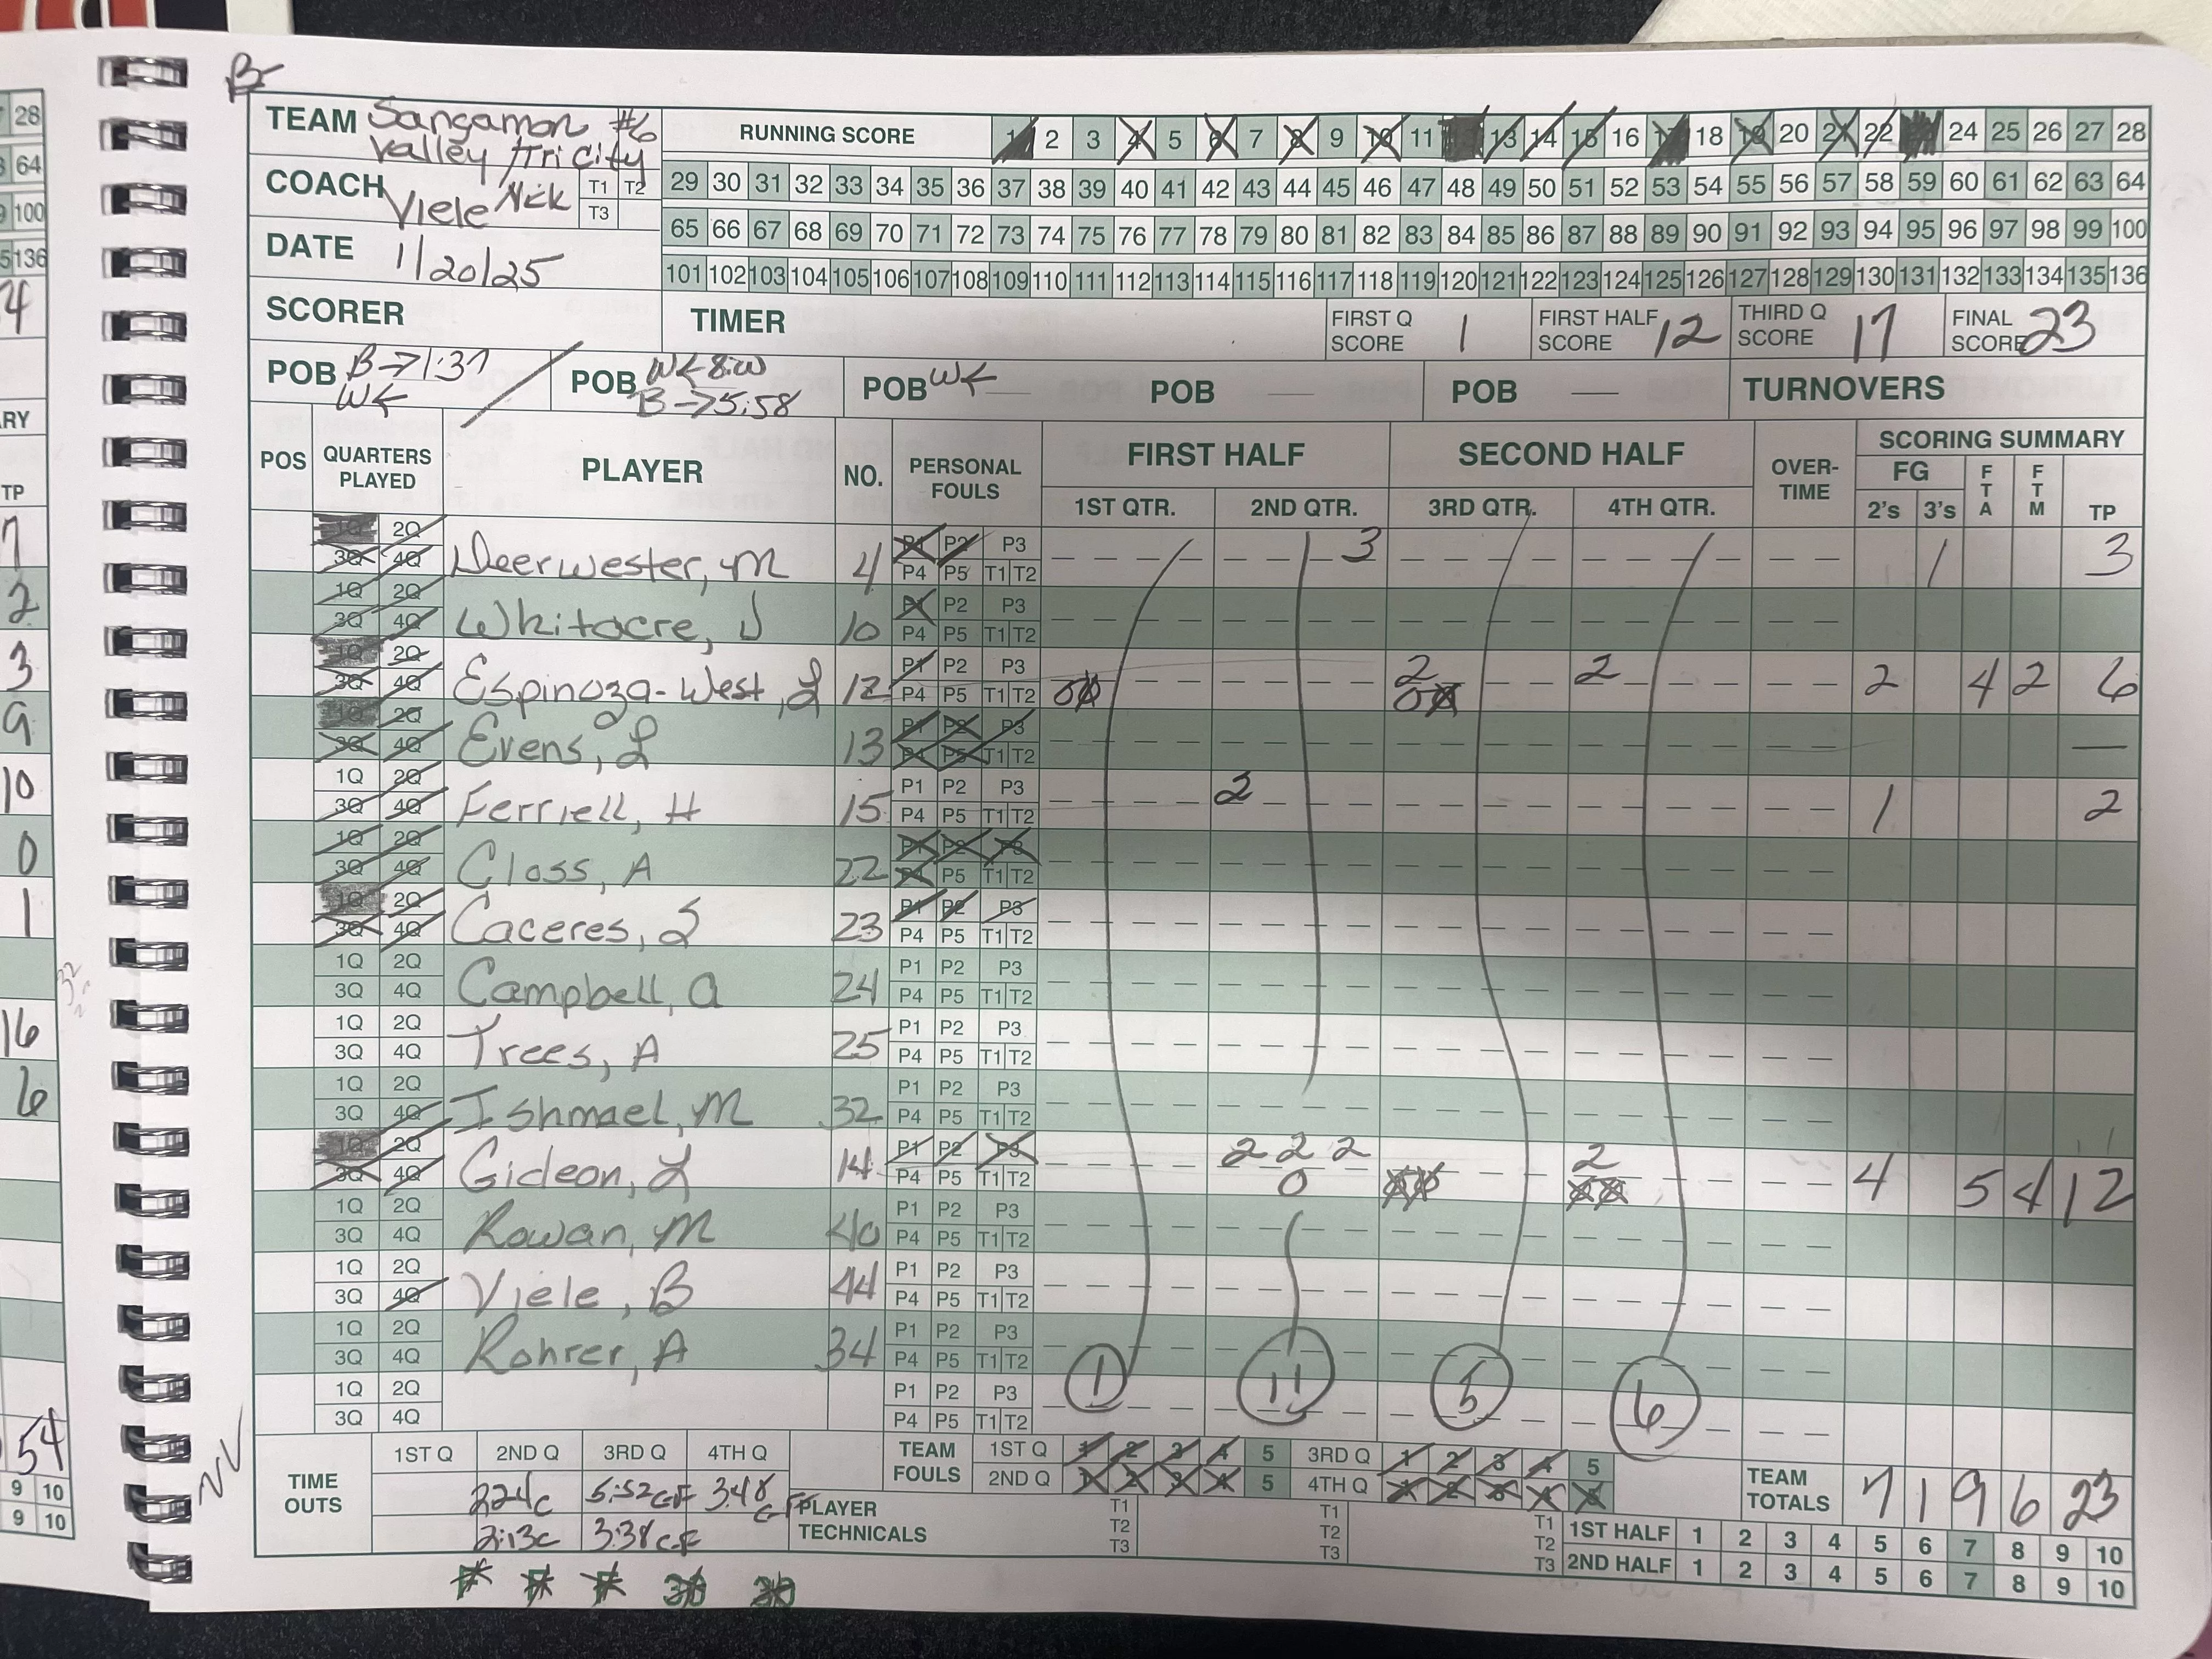 B
TEAM Sangamon #6
Valley /Tri City
COACH Viele Nick T1 T2 T3
DATE 1/20/25
SCORER
RUNNING SCORE 1 2 3 4 5 6 7 8 9 10 11 12 13 14 15 16 17 18 19 20 21 22 23 24 25 26 27 28
29 30 31 32 33 34 35 36 37 38 39 40 41 42 43 44 45 46 47 48 49 50 51 52 53 54 55 56 57 58 59 60 61 62 63 64
65 66 67 68 69 70 71 72 73 74 75 76 77 78 79 80 81 82 83 84 85 86 87 88 89 90 91 92 93 94 95 96 97 98 99 100
101 102 103 104 105 106 107 108 109 110 111 112 113 114 115 116 117 118 119 120 121 122 123 124 125 126 127 128 129 130 131 132 133 134 135 136
TIMER FIRST Q SCORE 1 FIRST HALF SCORE 12 THIRD Q SCORE 17 FINAL SCORE 23
POB B→1:37 W← POB W← B→5:58 POB W← — POB — POB — TURNOVERS
POS QUARTERS PLAYED PLAYER NO. PERSONAL FOULS FIRST HALF SECOND HALF OVER-TIME SCORING SUMMARY
1ST QTR. 2ND QTR. 3RD QTR. 4TH QTR. FG 2's 3's FTA FTM TP
1Q 2Q P1 P2 P3
3Q 4Q Deerwester, M 4 P4 P5 T1 T2 3 1 3
1Q 2Q P1 P2 P3
3Q 4Q Whitacre, J 10 P4 P5 T1 T2
1Q 2Q P1 P2 P3 2 2
3Q 4Q Espinoza-West, L 12 P4 P5 T1 T2 2 4 2 6
1Q 2Q P1 P2 P3
3Q 4Q Evens, L 13 P4 P5 T1 T2 —
1Q 2Q P1 P2 P3
3Q 4Q Ferriell, H 15 P4 P5 T1 T2 2 1 2
1Q 2Q P1 P2 P3
3Q 4Q Closs, A 22 P4 P5 T1 T2
1Q 2Q P1 P2 P3
3Q 4Q Caceres, S 23 P4 P5 T1 T2
1Q 2Q P1 P2 P3
3Q 4Q Campbell, A 24 P4 P5 T1 T2
1Q 2Q P1 P2 P3
3Q 4Q Trees, A 25 P4 P5 T1 T2
1Q 2Q P1 P2 P3
3Q 4Q Ishmael, M 32 P4 P5 T1 T2
1Q 2Q P1 P2 P3 2 2 2 2
3Q 4Q Gideon, L 14 P4 P5 T1 T2 0 4 5 4 12
1Q 2Q P1 P2 P3
3Q 4Q Rowan, M 40 P4 P5 T1 T2
1Q 2Q P1 P2 P3
3Q 4Q Viele, B 44 P4 P5 T1 T2
1Q 2Q P1 P2 P3
3Q 4Q Rohrer, A 34 P4 P5 T1 T2
1Q 2Q P1 P2 P3 1 11 5 6
3Q 4Q P4 P5 T1 T2
TIME OUTS 1ST Q 2ND Q 3RD Q 4TH Q
2:24c 5:52 3:48
2:13c 3:38
TEAM FOULS 1ST Q 1 2 3 4 5 3RD Q 1 2 3 4 5
2ND Q 1 2 3 4 5 4TH Q 1 2 3 4 5
PLAYER TECHNICALS T1 T2 T3 T1 T2 T3 T1 T2 T3
TEAM TOTALS 7 1 9 6 23
1ST HALF 1 2 3 4 5 6 7 8 9 10
2ND HALF 1 2 3 4 5 6 7 8 9 10
F F F 30 30
28
64
100
136
TP
7
2
3
9
10
0
1
16
6
54
9 10
9 10